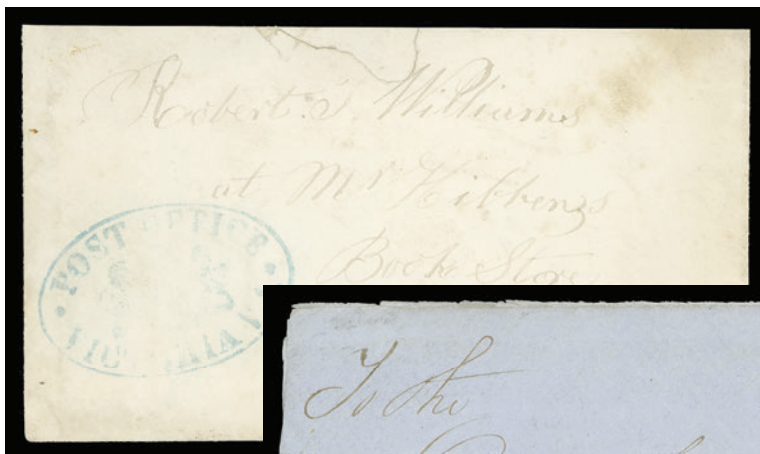 Robert. T. Williams
at Mr Hibbens
Book Store
POST OFFICE
VICTORIA
To the